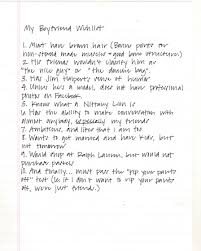 My Boyfriend Wishlist
1. Must have brown hair (Bonus points for
non-steroid made muscles + good bone structure)
2. His friends wouldn't classify him as
"the nice guy" or "the douche bag".
3. Has Jim Halpert's sense of humor
4. Unless he's a model, does not have professional
photos on Facebook
5. Knows what a Nittany Lion is
6. Has the ability to make conversation with
almost anybody, especially my friends
7. Ambitious, and likes that I am too
8. Wants to get married and have kids, but
not tomorrow
9. Would shop at Ralph Lauren, but would not
purchase pastels
10. And finally... must pass the "rip your pants
off" test (ie: if I don't want to rip your pants
off, we're just friends.)